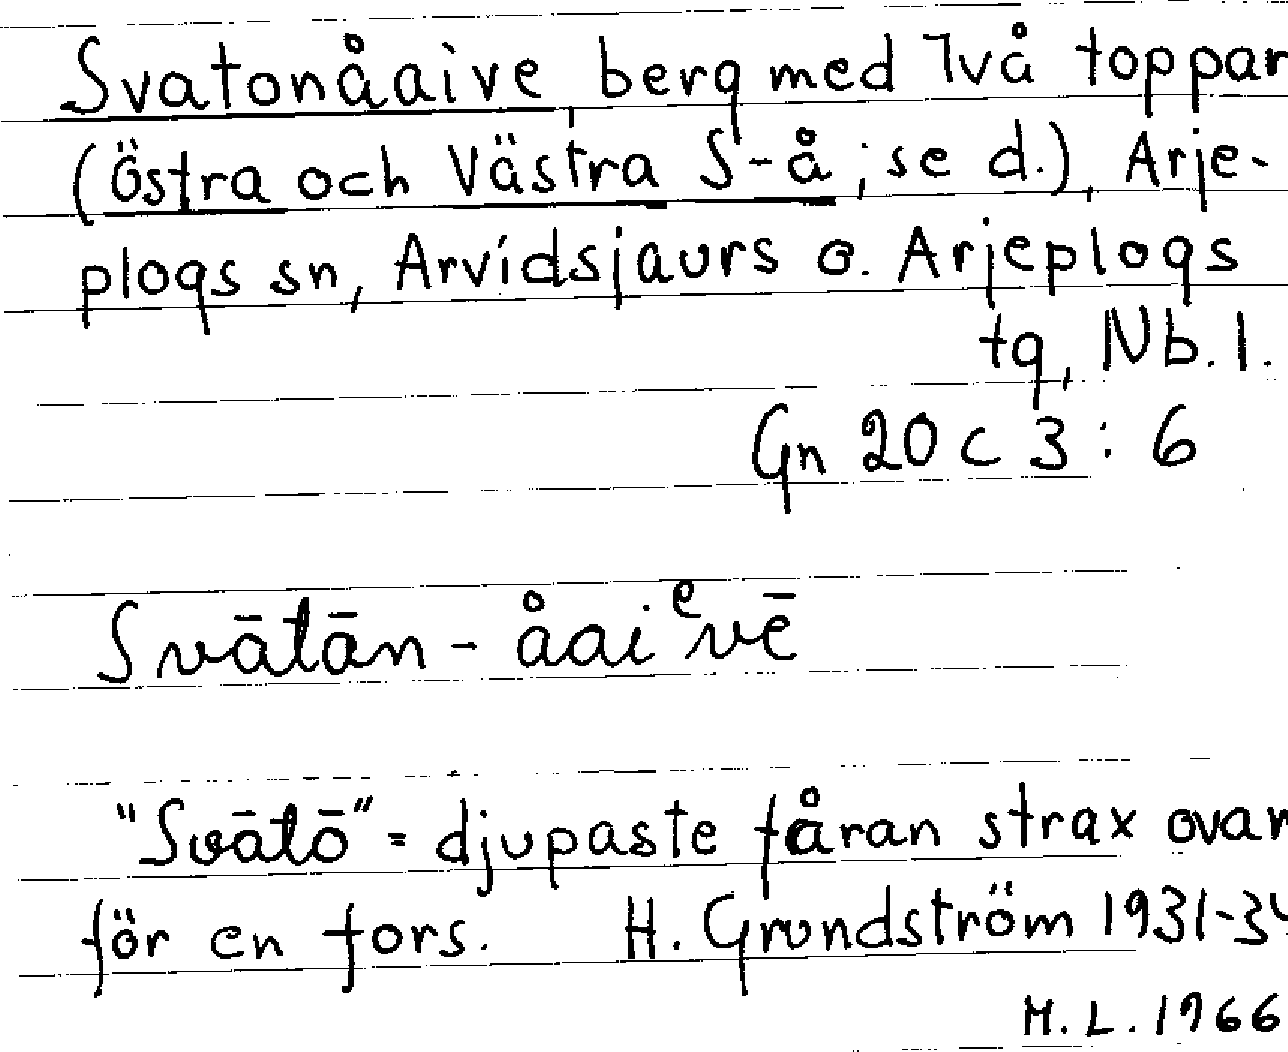 Svatonåaive, berg med två toppar
(Östra och Västra S-å; se d.), Arje-
plogs sn, Arvidsjaurs o. Arjeplogs
tg, Nb. l.
Gn 20 c 3 : 6
Svātān - åaiᵉvē
"Svātō" = djupaste fåran strax ovan
för en fors. H. Grundström 1931-34
M. L. 1966